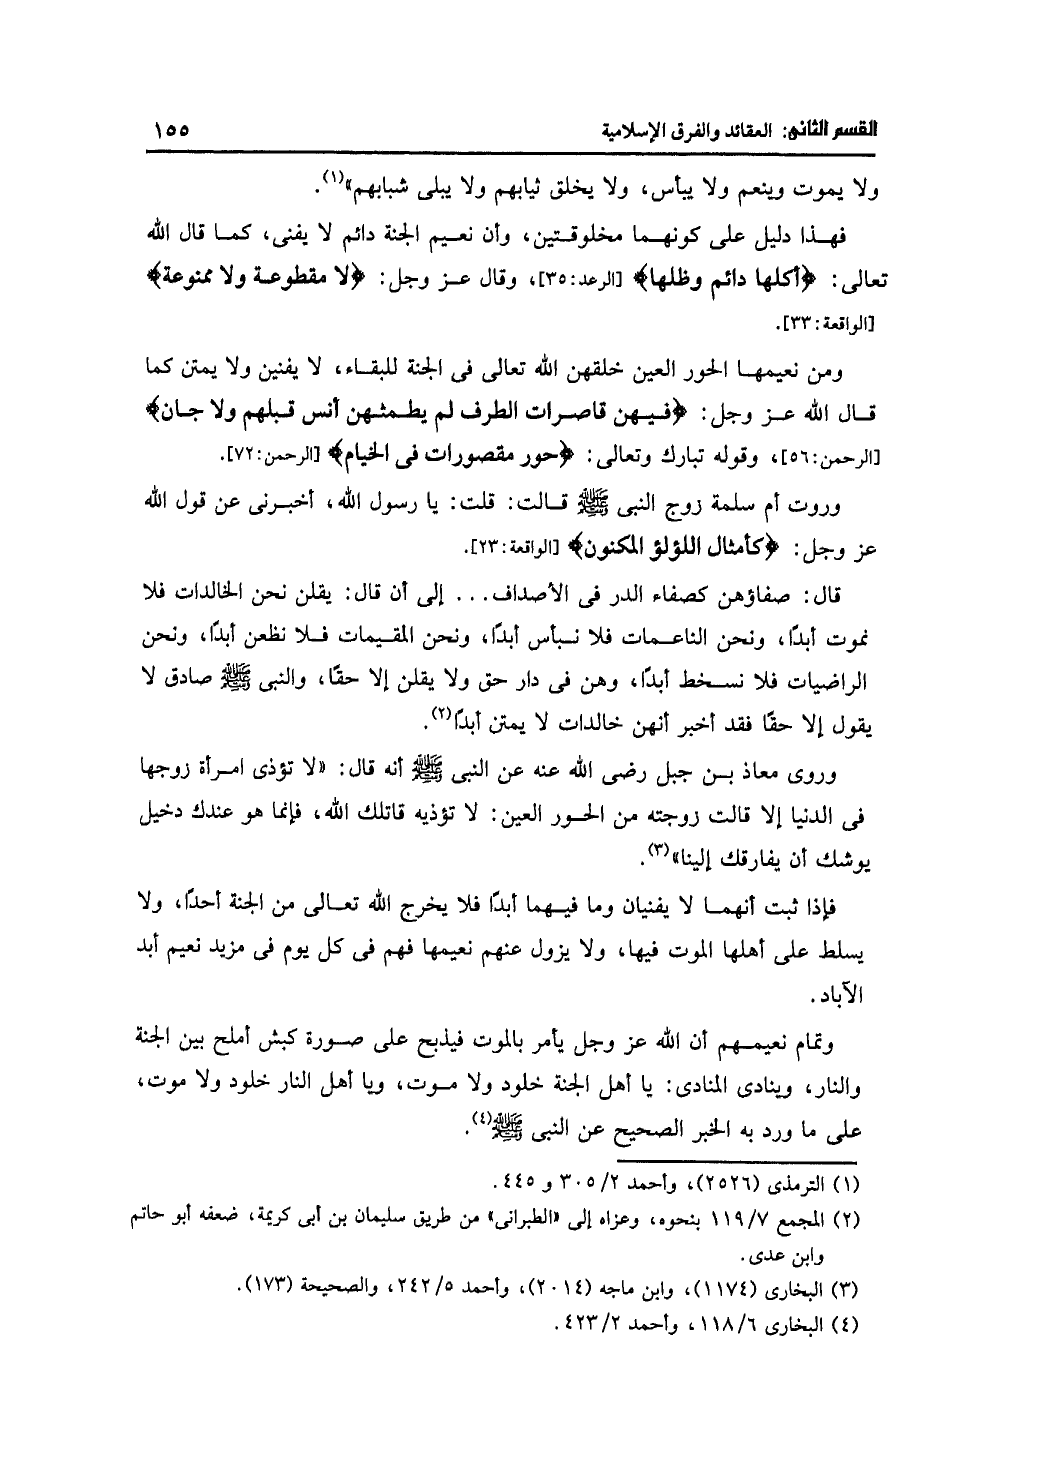 القسم الثانى: العقائد والفرق الإسلامية ١٥٥
ولا يموت وينعم ولا يبأس، ولا يخلق ثيابهم ولا يبلى شبابهم»(١).
فهذا دليل على كونهما مخلوقتين، وأن نعيم الجنة دائم لا يفنى، كما قال الله
تعالى: ﴿أكلها دائم وظلها﴾ [الرعد:٣٥]، وقال عز وجل: ﴿لا مقطوعة ولا ممنوعة﴾
[الواقعة:٣٣].
ومن نعيمها الحور العين خلقهن الله تعالى فى الجنة للبقاء، لا يفنين ولا يمتن كما
قال الله عز وجل: ﴿فيهن قاصرات الطرف لم يطمثهن أنس قبلهم ولا جان﴾
[الرحمن:٥٦]، وقوله تبارك وتعالى: ﴿حور مقصورات فى الخيام﴾ [الرحمن:٧٢].
وروت أم سلمة زوج النبى ﷺ قالت: قلت: يا رسول الله، أخبرنى عن قول الله
عز وجل: ﴿كأمثال اللؤلؤ المكنون﴾ [الواقعة:٢٣].
قال: صفاؤهن كصفاء الدر فى الأصداف... إلى أن قال: يقلن نحن الخالدات فلا
نموت أبدًا، ونحن الناعمات فلا نبأس أبدًا، ونحن المقيمات فلا نظعن أبدًا، ونحن
الراضيات فلا نسخط أبدًا، وهن فى دار حق ولا يقلن إلا حقًا، والنبى ﷺ صادق لا
يقول إلا حقًا فقد أخبر أنهن خالدات لا يمتن أبدًا(٢).
وروى معاذ بن جبل رضى الله عنه عن النبى ﷺ أنه قال: «لا تؤذى امرأة زوجها
فى الدنيا إلا قالت زوجته من الحور العين: لا تؤذيه قاتلك الله، فإنما هو عندك دخيل
يوشك أن يفارقك إلينا»(٣).
فإذا ثبت أنهما لا يفنيان وما فيهما أبدًا فلا يخرج الله تعالى من الجنة أحدًا، ولا
يسلط على أهلها الموت فيها، ولا يزول عنهم نعيمها فهم فى كل يوم فى مزيد نعيم أبد
الآباد.
وتمام نعيمهم أن الله عز وجل يأمر بالموت فيذبح على صورة كبش أملح بين الجنة
والنار، وينادى المنادى: يا أهل الجنة خلود ولا موت، ويا أهل النار خلود ولا موت،
على ما ورد به الخبر الصحيح عن النبى ﷺ(٤).
(١) الترمذى (٢٥٢٦)، وأحمد ٣٠٥/٢ و ٤٤٥.
(٢) المجمع ١١٩/٧ بنحوه، وعزاه إلى «الطبرانى» من طريق سليمان بن أبى كريمة، ضعفه أبو حاتم
وابن عدى.
(٣) البخارى (١١٧٤)، وابن ماجه (٢٠١٤)، وأحمد ٢٤٢/٥، والصحيحة (١٧٣).
(٤) البخارى ١١٨/٦، وأحمد ٤٢٣/٢.